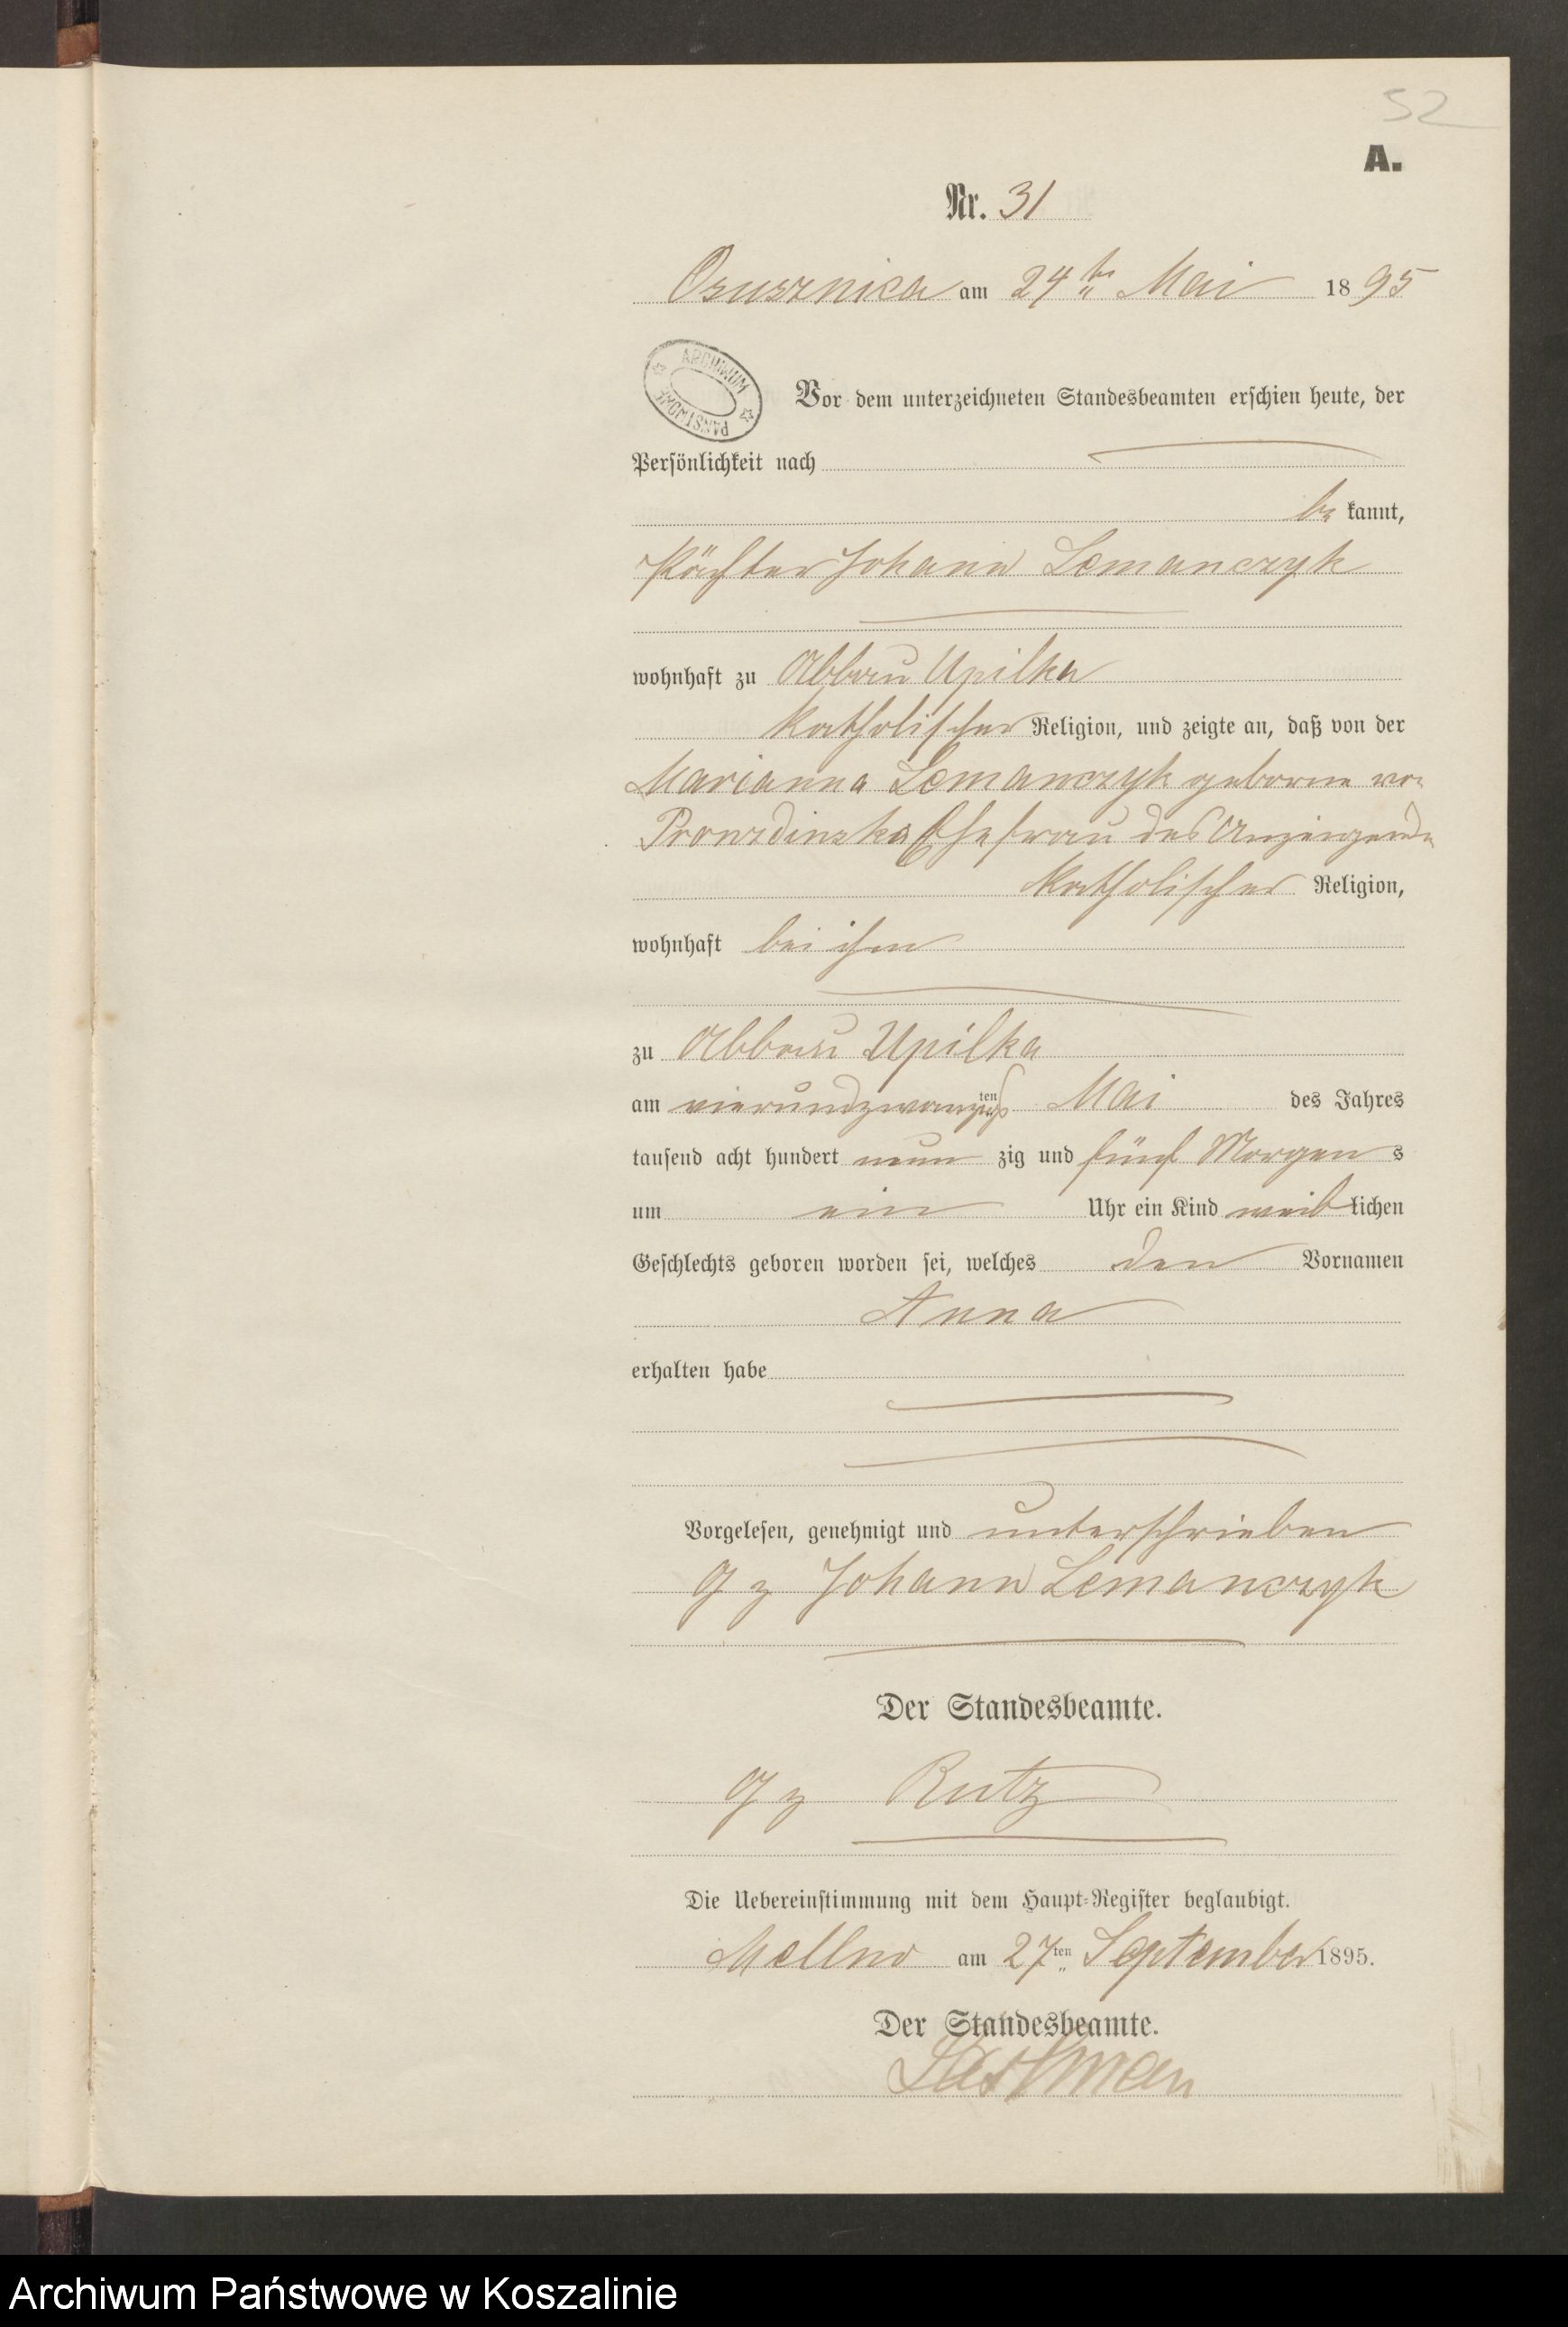 52
A.
Nr. 31
Osusznica am 24ten Mai 1895
ARCHIWUM PAŃSTWOWE
Vor dem unterzeichneten Standesbeamten erschien heute, der
Persönlichkeit nach
be kannt,
Pächter Johann Lemanczyk
wohnhaft zu Abbau Upilka
katholischer Religion, und zeigte an, daß von der
Marianna Lemanczyk geborne von
Prondzinska Ehefrau des Anzeigenden
katholischer Religion,
wohnhaft bei ihm
zu Abbau Upilka
am vierundzwanzigsten Mai des Jahres
tausend acht hundert neun zig und fünf Morgen s
um ein Uhr ein Kind weib lichen
Geschlechts geboren worden sei, welches den Vornamen
Anna
erhalten habe
Vorgelesen, genehmigt und unterschrieben
gz Johann Lemanczyk
Der Standesbeamte.
gz Rutz
Die Uebereinstimmung mit dem Haupt-Register beglaubigt.
am 27ten September 1895.
Der Standesbeamte.
Archiwum Państwowe w Koszalinie